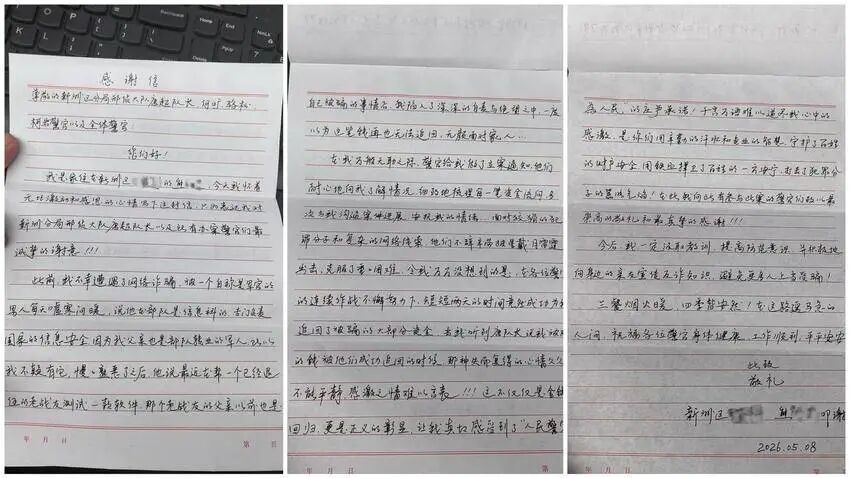 感谢信
尊敬的新洲区分局邾城大队唐超队长,
胡 警官以及全体警官:
你们好!
我是家住在新洲区 的 ,今天我怀着
无比激动和感恩的心情写下这封信,只为表达我对
新洲分局邾城大队唐超队长以及所有办案警们最
诚挚的谢意!!!
此前,我不幸遭遇了网络诈骗,被一个自称是军官的
男人每天嘘寒问暖,说他在部队是信息科的 专门负责
国家的信息安全 因为我父亲也是部队转业的军人,所以
我不疑有它,慢慢熟悉了之后,他说最近在帮一个已经退
伍的老战友测试一款软件,那个老战友的父亲以前也是
自己被骗的事情后,我陷入了深深的自责与绝望之中,一度
以为这笔钱再也无法追回,无颜面对家人...
在我万般无助之际,警官给我做了立案通知,他们
耐心地向我了解情况,细致地梳理每一笔资金流向,多
次与我沟通案件进展,安抚我的情绪。面对狡猾的犯
罪分子和复杂的网络线索,他们不辞辛劳披星戴月穿梭
出去,克服了重重困难,令我万万没想到的是,在各位警
的连续作战不懈努力下,短短两天的时间竟然成功为
追回了被骗的大部分资金,当我听到唐队长说我被
的钱被他们成功追回的时候,那种失而复得的心情久久
不能平静,感激之情难以言表!!!这不仅仅是金钱
回归,更是正义的彰显,让我真切感受到了"人民警
为人民"的庄严承诺!千言万语难以道尽我心中的
感激,是你们用辛勤的汗水和专业的智慧,守护了百姓
的财产安全,用铁肩撑起了百姓的一片安宁,打击了犯罪分
子的嚣张气焰!在此我向所有参与此案的警官们致以最
崇高的敬礼和最真挚的感谢!!!
今后,我一定汲取教训,提高防范意识,并积极地
向身边的亲友宣传反诈知识,避免更多人上当受骗!
三餐烟火暖,四季皆安然!在这路遥马急的
人间,祝福各位警官身体健康,工作顺利,平平安安
此致
敬礼
新洲区 叩谢
2026.05.08
年 月 日 第 页
年 月 日 第
年 月 日